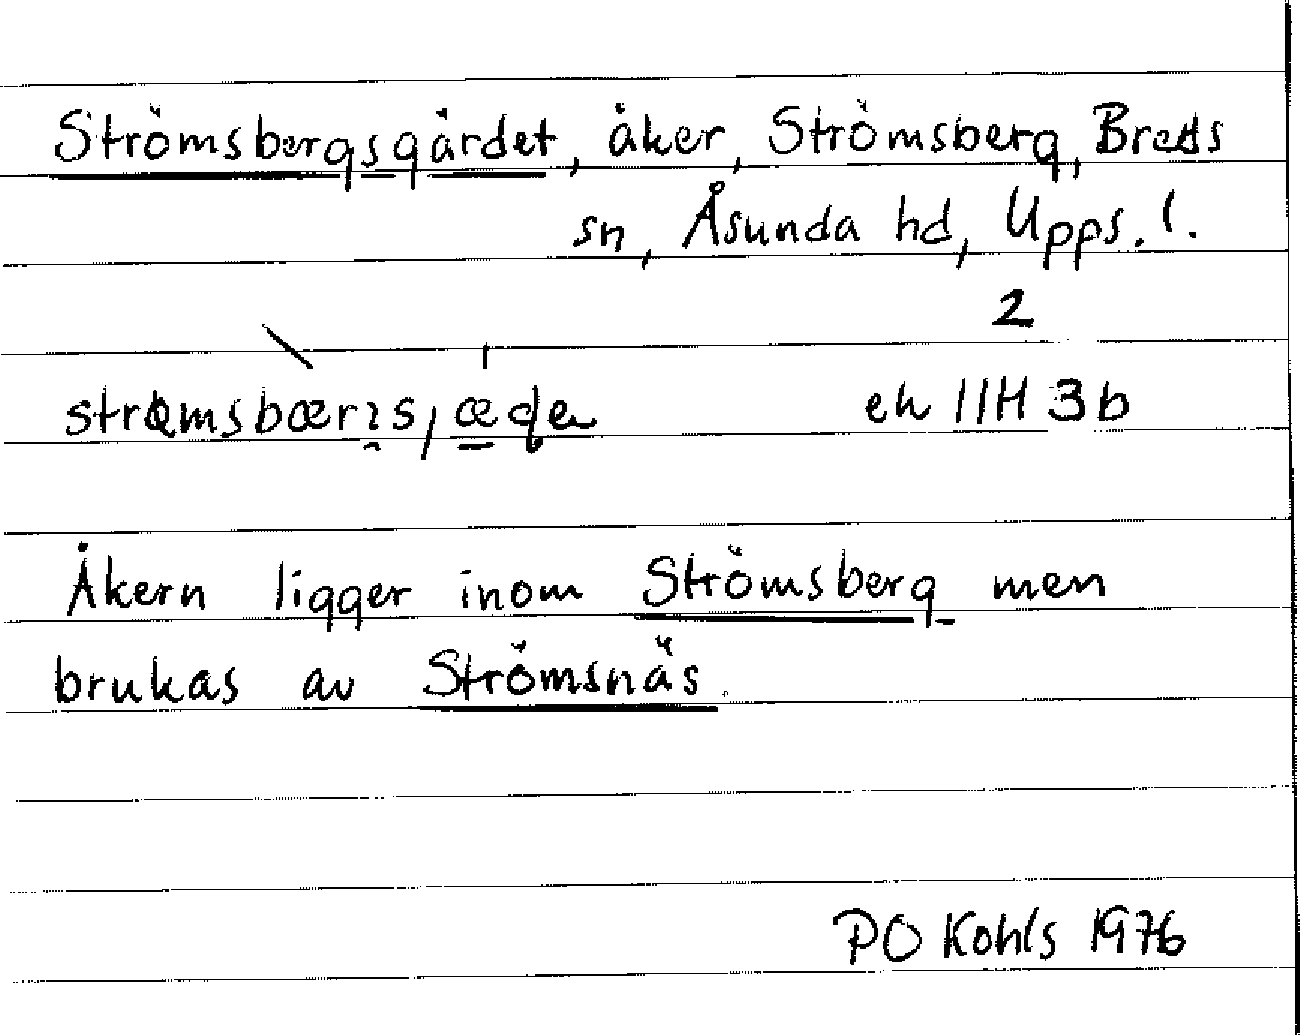 Strömsbergsgärdet, åker, Strömsberg, Breds
sn, Åsunda hd, Upps. l.
2
ek 11H 3b
Åkern ligger inom Strömsberg men
brukas av Strömsnäs.
PO Kohls 1976